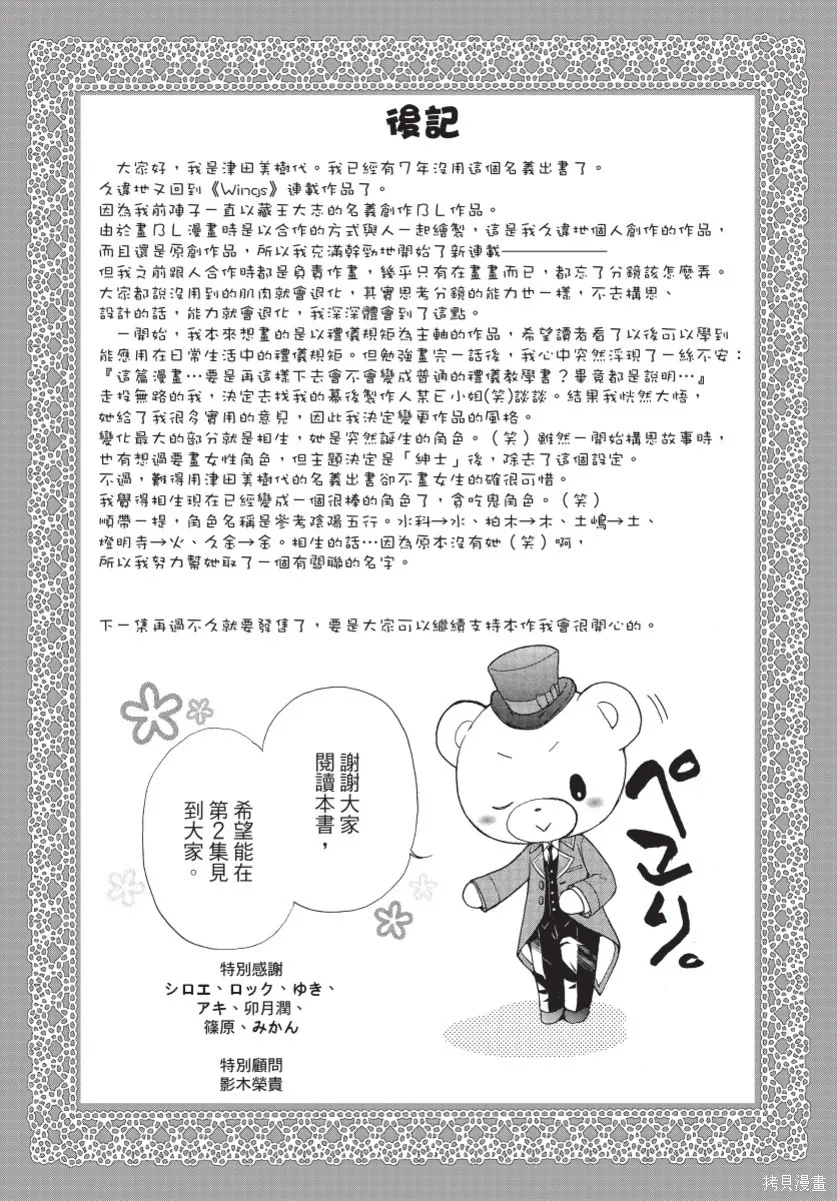 後記
大家好，我是津田美樹代。我已經有7年沒用這個名義出書了。
久違地又回到《Wings》連載作品了。
因為我前陣子一直以藏王大志的名義創作BL作品。
由於畫BL漫畫時是以合作的方式與人一起繪製，這是我久違地個人創作的作品，
而且還是原創作品，所以我充滿幹勁地開始了新連載─────
但我之前跟人合作時都是負責作畫，幾乎只有在畫畫而已，都忘了分鏡該怎麼弄。
大家都說沒用到的肌肉就會退化，其實思考分鏡的能力也一樣，不去構思、
設計的話，能力就會退化，我深深體會到了這點。
一開始，我本來想畫的是以禮儀規矩為主軸的作品，希望讀者看了以後可以學到
能應用在日常生活中的禮儀規矩。但勉強畫完一話後，我心中突然浮現了一絲不安：
『這篇漫畫…要是再這樣下去會不會變成普通的禮儀教學書？畢竟都是說明…』
走投無路的我，決定去找我的幕後製作人某E小姐(笑)談談。結果我恍然大悟，
她給了我很多實用的意見，因此我決定變更作品的風格。
變化最大的部分就是相生，她是突然誕生的角色。（笑）雖然一開始構思故事時，
也有想過要畫女性角色，但主題決定是「紳士」後，除去了這個設定。
不過，難得用津田美樹代的名義出書卻不畫女生的確很可惜。
我覺得相生現在已經變成一個很棒的角色了，貪吃鬼角色。（笑）
順帶一提，角色名稱是參考陰陽五行。水科→水、柏木→木、土嶋→土、
燈明寺→火、久金→金。相生的話…因為原本沒有她（笑）啊，
所以我努力幫她取了一個有關聯的名字。
下一集再過不久就要發售了，要是大家可以繼續支持本作我會很開心的。
謝謝大家
閱讀本書，
希望能在
第2集見
到大家。
ペコリ。
特別感謝
シロエ、ロック、ゆき、
アキ、卯月潤、
篠原、みかん
特別顧問
影木榮貴
拷貝漫畫